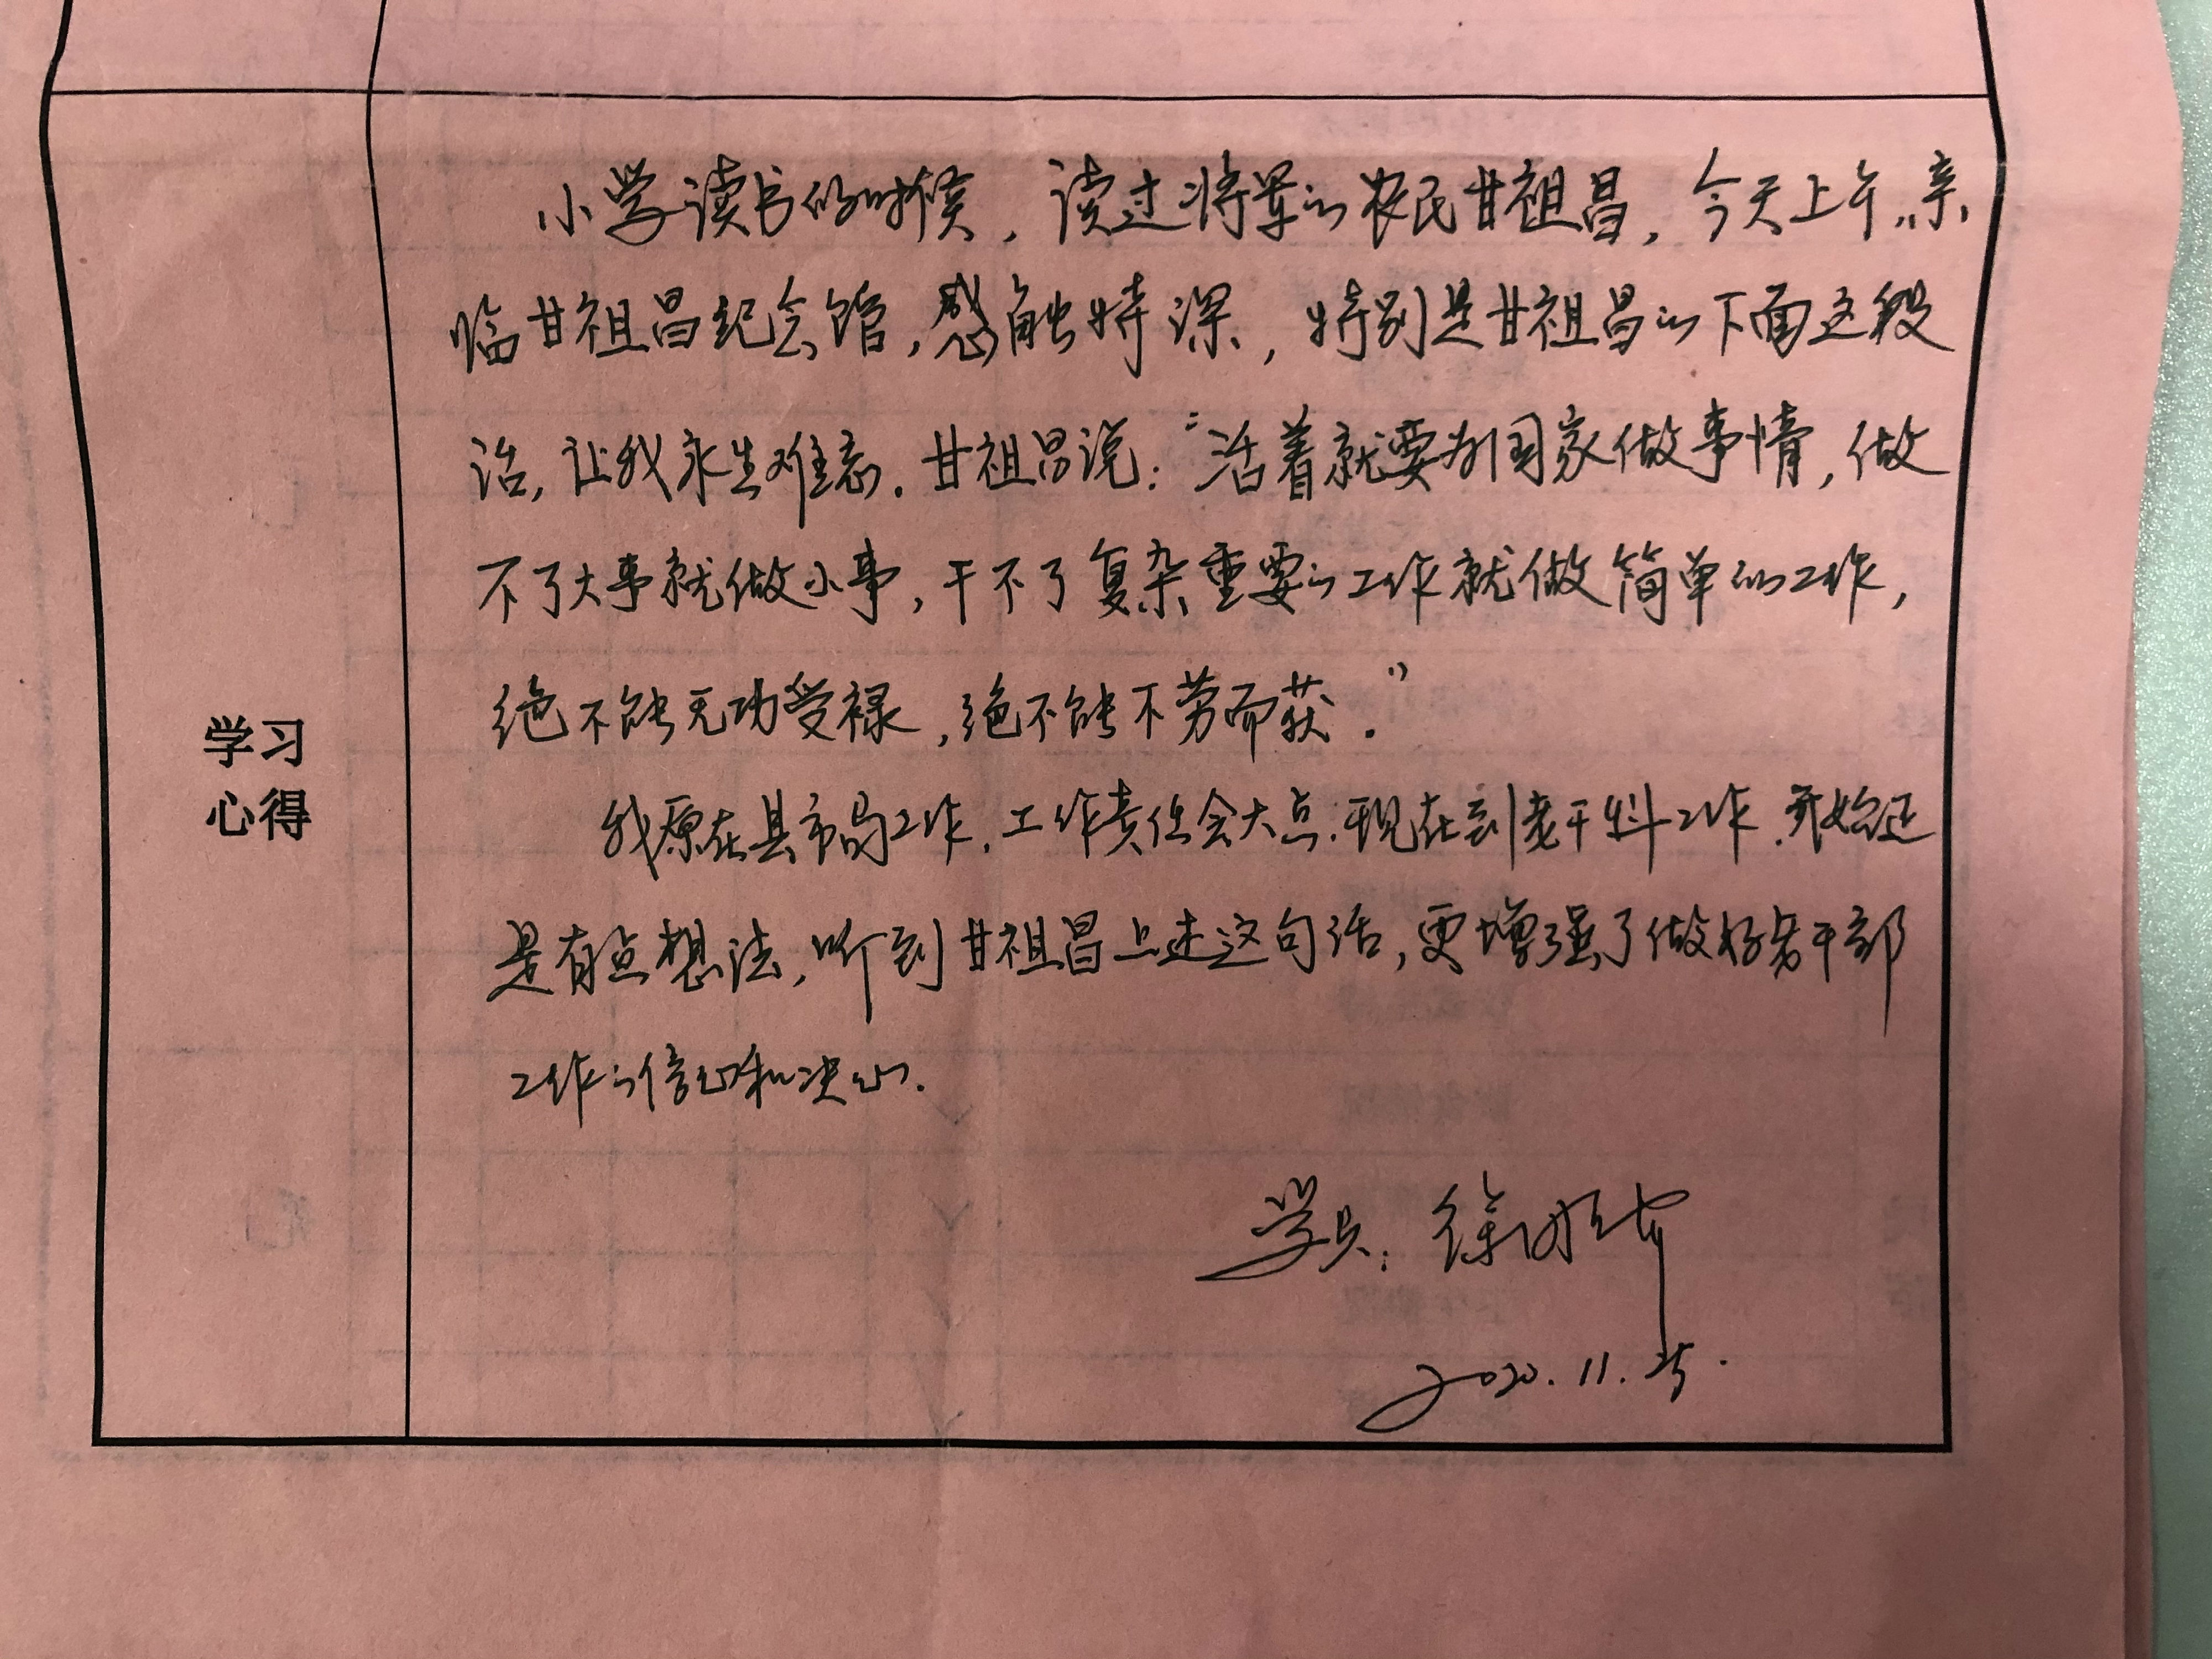 小学读书的时候，读过将军的农民甘祖昌，今天上午，亲
临甘祖昌纪念馆，感触特深，特别是甘祖昌的下面这段
话，让我永生难忘。甘祖昌说：“活着就要为国家做事情，做
不了大事就做小事，干不了复杂重要的工作就做简单的工作，
绝不能无功受禄，绝不能不劳而获。”
学习
心得
我原在县市局工作，工作责任会大点，现在到老干科工作，开始还
是有点想法，听到甘祖昌上述这句话，更增强了做好老干部
工作的信心和决心。
学员：徐
2020.11.25.